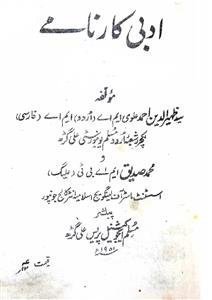 ادبی کارنامے
مؤلفہ
سید ظہیر الدین احمد علوی ایم اے (اردو) ایم اے (فارسی)
لکچرر شعبۂ اردو مسلم یونیورسٹی علی گڑھ
و
محمد صدیق ایم اے بی ٹی (علیگ)
اسسٹنٹ ماسٹر اسلامیہ انٹر کالج جونپور
پبلشر
مسلم ایجوکیشنل پریس علی گڑھ
۱۹۵۱
قیمت